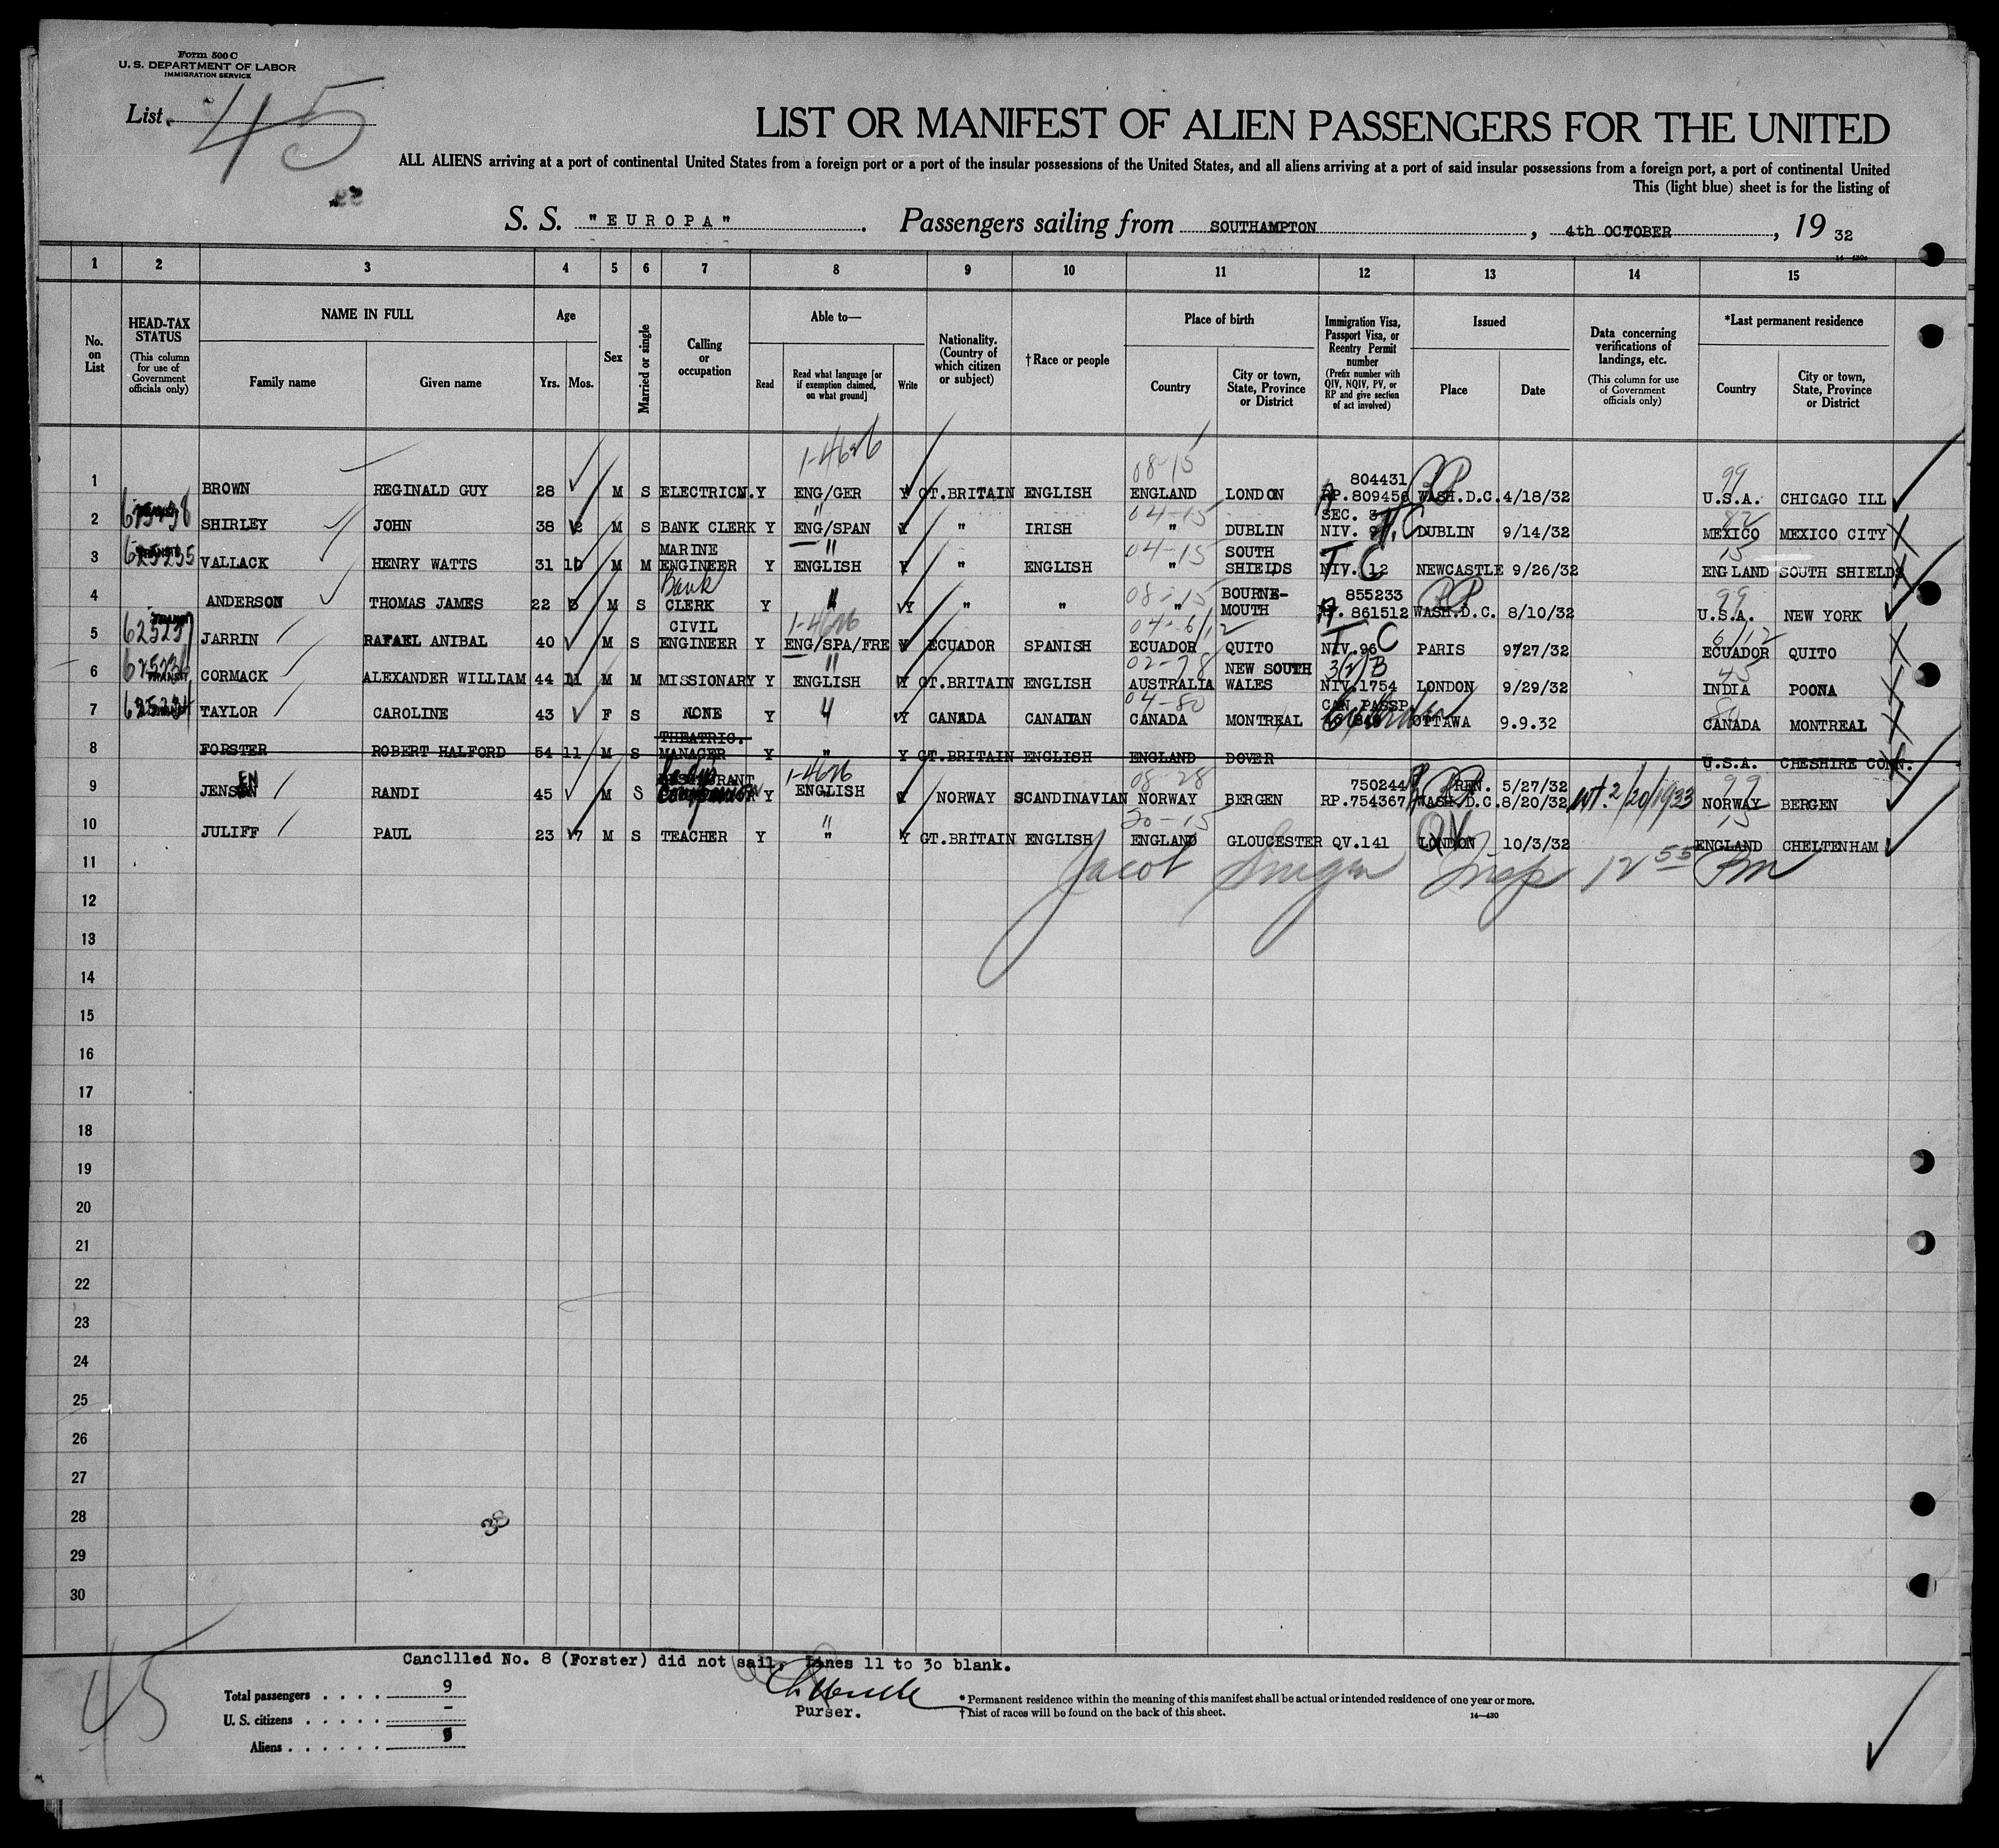 Form 500 C
U. S. DEPARTMENT OF LABOR
IMMIGRATION SERVICE
List 45
LIST OR MANIFEST OF ALIEN PASSENGERS FOR THE UNITED
ALL ALIENS arriving at a port of continental United States from a foreign port or a port of the insular possessions of the United States, and all aliens arriving at a port of said insular possessions from a foreign port, a port of continental United
This (light blue) sheet is for the listing of
S. S. "EUROPA" . Passengers sailing from SOUTHAMPTON , 4th OCTOBER , 19 32
1 2 3 4 5 6 7 8 9 10 11 12 13 14 15
No. on List
HEAD-TAX STATUS (This column for use of Government officials only)
NAME IN FULL Family name Given name
Age Yrs. Mos.
Sex
Married or single
Calling or occupation
Able to— Read Read what language [or if exemption claimed, on what ground] Write
Nationality. (Country of which citizen or subject)
†Race or people
Place of birth Country City or town, State, Province or District
Immigration Visa, Passport Visa, or Reentry Permit number (Prefix number with QIV, NQIV, PV, or RP and give section of act involved)
Issued Place Date
Data concerning verifications of landings, etc. (This column for use of Government officials only)
*Last permanent residence Country City or town, State, Province or District
1-4626 08-15 804431 99
1 BROWN REGINALD GUY 28 M S ELECTRICN. Y ENG/GER Y GT.BRITAIN ENGLISH ENGLAND LONDON RP.809456 WASH.D.C. 4/18/32 U.S.A. CHICAGO ILL
" 04-15 SEC. 3 82
2 SHIRLEY JOHN 38 2 M S BANK CLERK Y ENG/SPAN Y " IRISH " DUBLIN NIV. DUBLIN 9/14/32 MEXICO MEXICO CITY
625235 TRANSIT MARINE " 04-15 SOUTH TC 15
3 VALLACK HENRY WATTS 31 10 M M ENGINEER Y ENGLISH Y " ENGLISH " SHIELDS NIV. 12 NEWCASTLE 9/26/32 ENGLAND SOUTH SHIELDS
Bank 08-15 BOURNE- 855233 RP 99
4 ANDERSON THOMAS JAMES 22 M S CLERK Y " Y " " " MOUTH 861512 WASH.D.C. 8/10/32 U.S.A. NEW YORK
625237 CIVIL 1-4626 04-6/12 TC 6/12
5 JARRIN RAFAEL ANIBAL 40 M S ENGINEER Y ENG/SPA/FRE Y ECUADOR SPANISH ECUADOR QUITO NIV.96 PARIS 9/27/32 ECUADOR QUITO
625236 TRANSIT " 02-78 NEW SOUTH 3(2)B 45
6 CORMACK ALEXANDER WILLIAM 44 11 M M MISSIONARY Y ENGLISH Y GT.BRITAIN ENGLISH AUSTRALIA WALES NIV.1754 LONDON 9/29/32 INDIA POONA
625234 04-80 CAN.PASSP.
7 TAYLOR CAROLINE 43 F S NONE Y " Y CANADA CANADIAN CANADA MONTREAL OTTAWA 9.9.32 CANADA MONTREAL
THEATRIC.
8 FORSTER ROBERT HALFORD 54 11 M S MANAGER Y " Y GT.BRITAIN ENGLISH ENGLAND DOVER U.S.A. CHESHIRE CONN.
EN Lady's 1-4626 08-28 750244 REN. 5/27/32 99
9 JENSEN RANDI 45 M S companion Y ENGLISH Y NORWAY SCANDINAVIAN NORWAY BERGEN RP.754367 WASH.D.C. 8/20/32 2/20/1933 NORWAY BERGEN
" 20-15 QV 15
10 JULIFF PAUL 23 7 M S TEACHER Y " Y GT.BRITAIN ENGLISH ENGLAND GLOUCESTER QV.141 LONDON 10/3/32 ENGLAND CHELTENHAM
11 Jacob Insp 12 55 Pm
12
13
14
15
16
17
18
19
20
21
22
23
24
25
26
27
28
29
30
38
45
Cancllled No. 8 (Forster) did not sail. Lines 11 to 30 blank.
Total passengers . . . . 9
U. S. citizens . . . . . -
Aliens . . . . . . 9
Purser.
* Permanent residence within the meaning of this manifest shall be actual or intended residence of one year or more.
† List of races will be found on the back of this sheet.
14—430